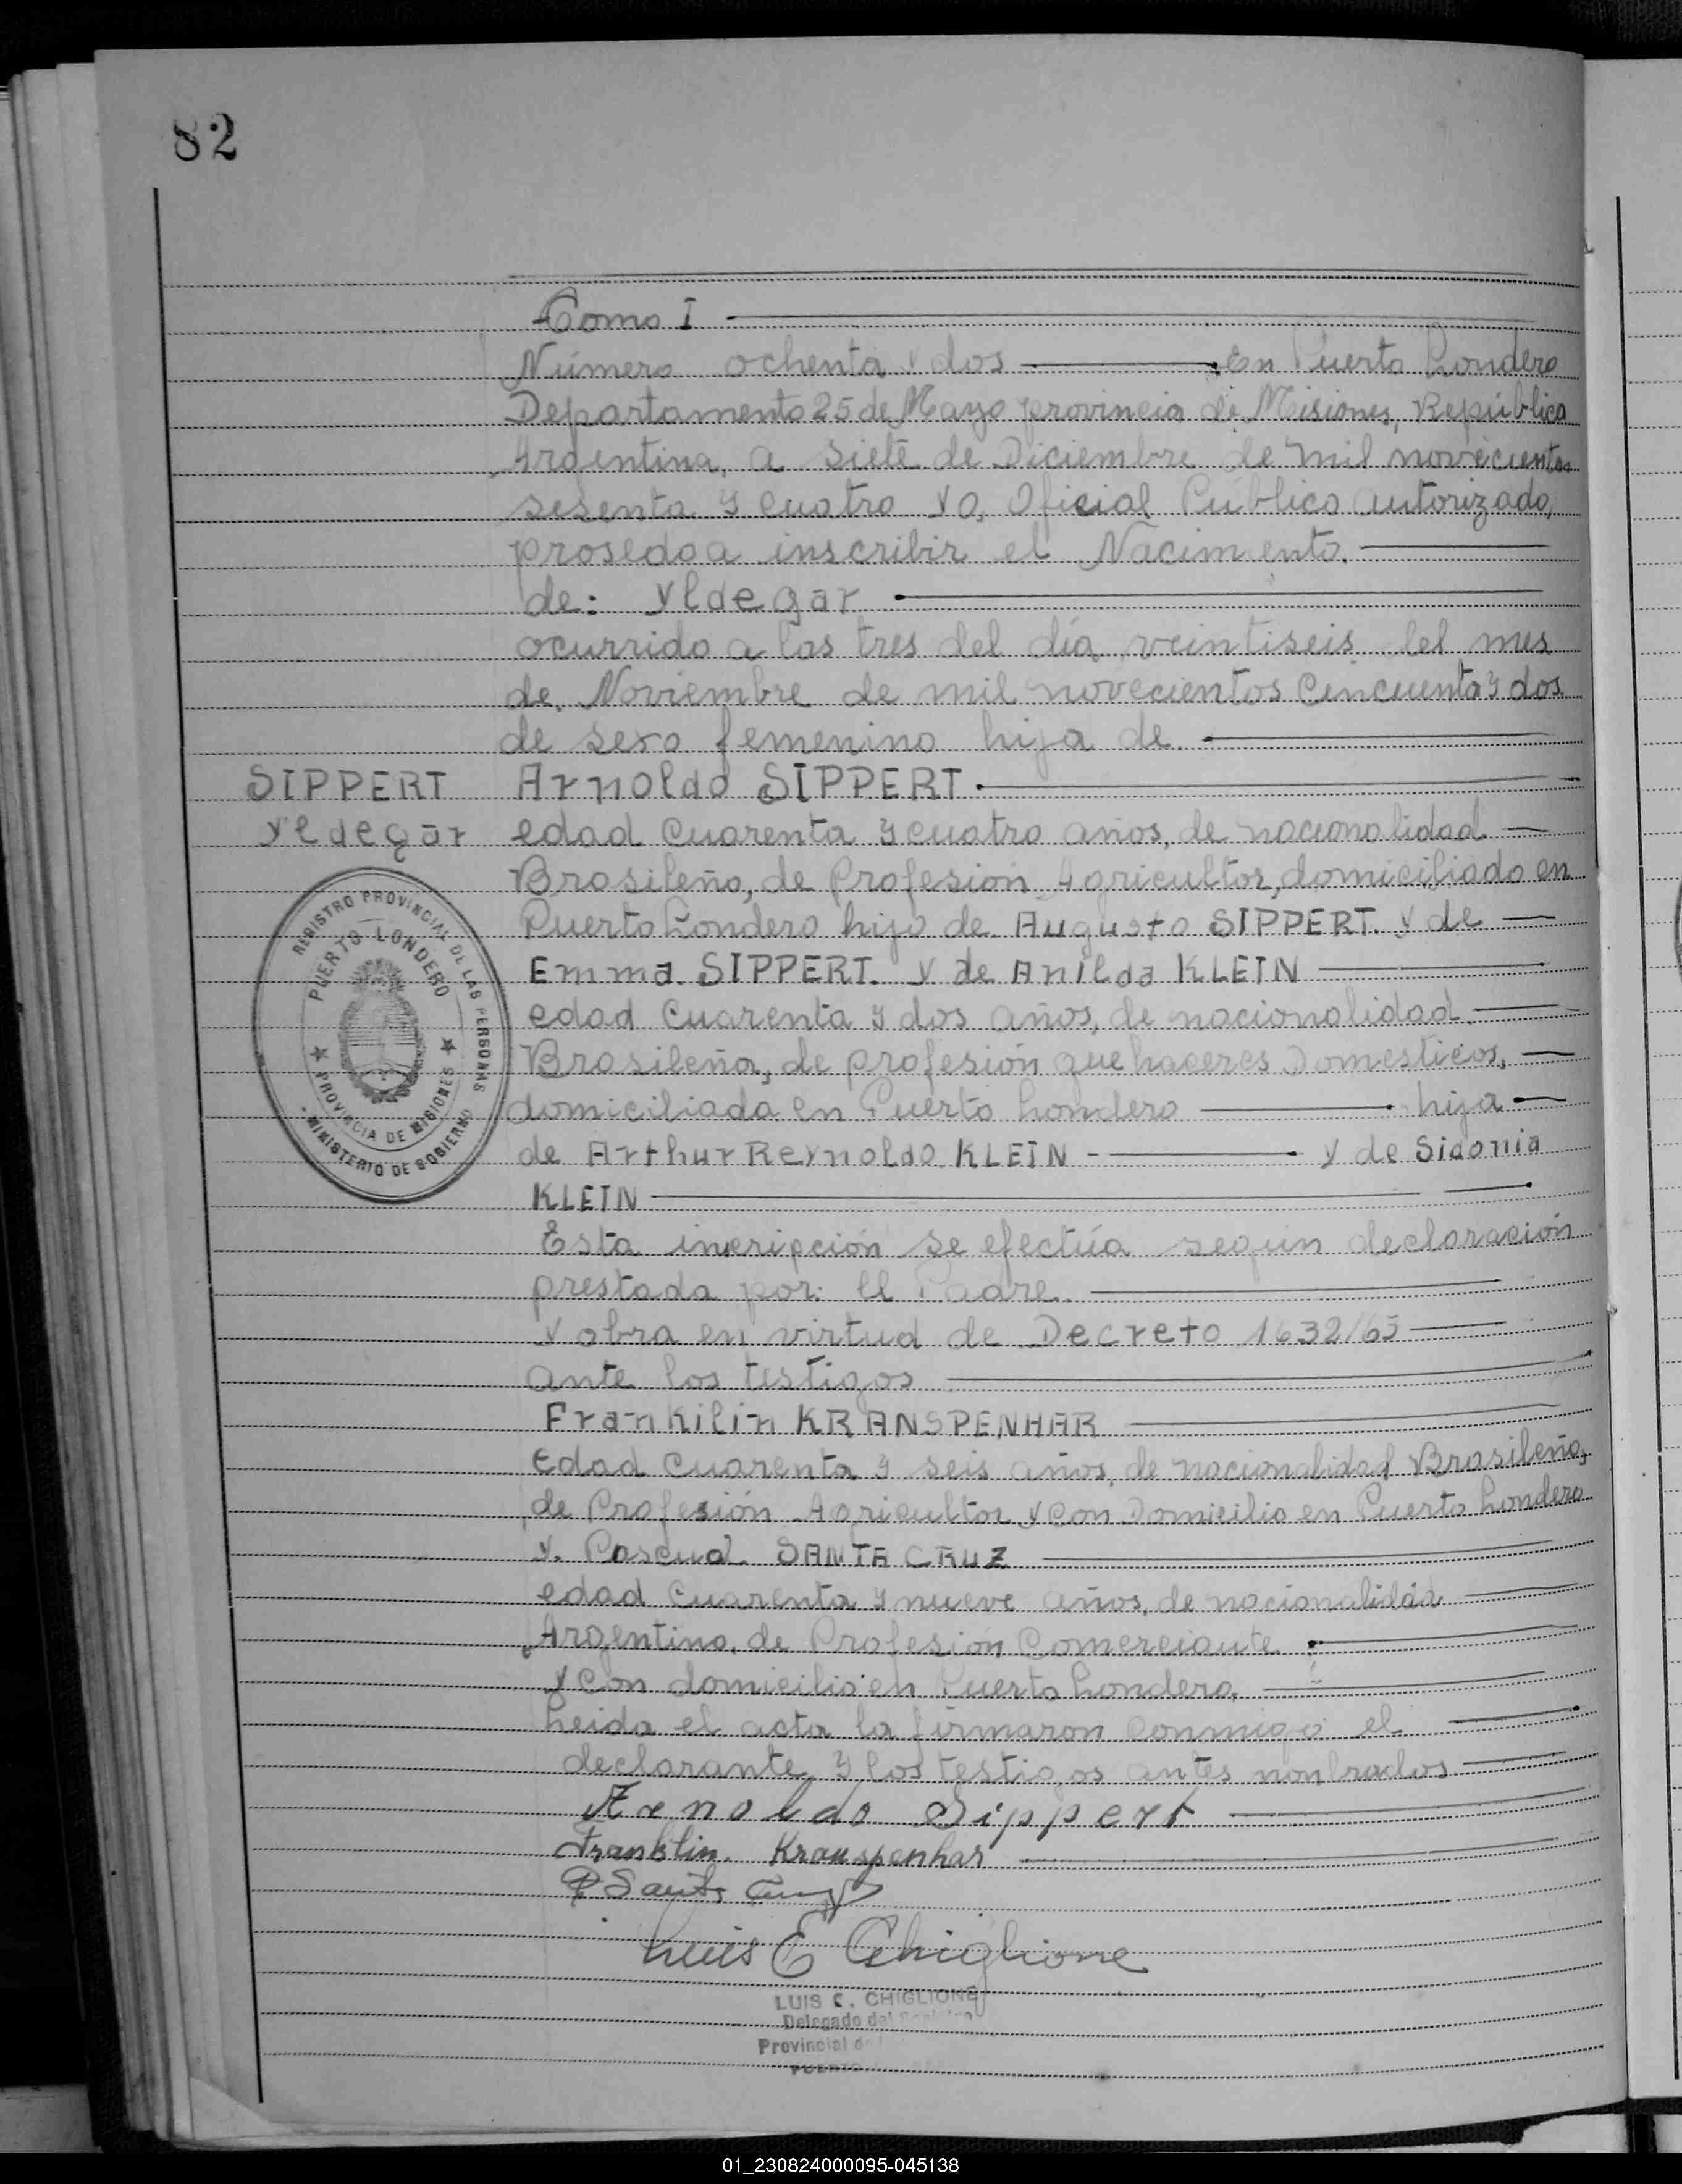 82
Tomo I
Número ochenta y dos En Puerto Londero
Departamento 25 de Mayo provincia de Misiones, República
Argentina, a siete de Diciembre de mil novecientos
sesenta y cuatro yo, Oficial Público autorizado,
prosedo a inscribir el Nacimiento.
de: Yldegar
ocurrido a las tres del día veintiseis del mes
de Noviembre de mil novecientos cincuenta y dos
de sexo femenino hija de
SIPPERT Arnoldo SIPPERT
Yldegar edad cuarenta y cuatro años, de nacionalidad
Brasileño, de Profesión Agricultor, domiciliado en
Puerto Londero hijo de Augusto SIPPERT. y de
Emma SIPPERT. y de Anilda KLEIN
edad cuarenta y dos años, de nacionalidad
Brasileña, de profesión que haceres Domesticos,
domiciliada en Puerto Londero hija
de Arthur Reynoldo KLEIN y de Sidonia
KLEIN
Esta inscripción se efectúa según declaración
prestada por: el Padre
y obra en virtud de Decreto 1632/63
ante los testigos
Frankilin KRANSPENHAR
edad cuarenta y seis años, de nacionalidad Brasileño,
de Profesión Agricultor y con Domicilio en Puerto Londero
y. Pascual SANTA CRUZ
edad cuarenta y nueve años, de nacionalidad
Argentino, de Profesión Comerciante
y con domicilio en Puerto Londero,
Leida el acta la firmaron conmigo el
declarante y los testigos antes nonbrados
Arnoldo Sippert
Franklin. Krauspenhar
P Santa Cruz
Luis E Chiglione
LUIS E. CHIGLIONE
Delegado del
Provincial de
PUERTO
REGISTRO PROVINCIAL DE LAS PERSONAS
PUERTO LONDERO
PROVINCIA DE MISIONES
MINISTERIO DE GOBIERNO
01_230824000095-045138